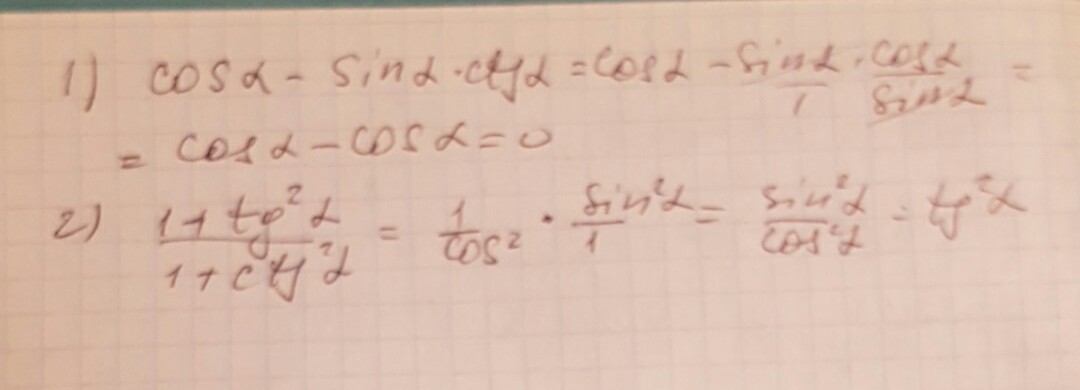 1) cos α - sin α · ctg α = cos α - sin α / 1 · cos α / sin α =
= cos α - cos α = 0
2) 1 + tg² α / 1 + ctg² α = 1 / cos² · sin² α / 1 = sin² α / cos² α = tg² α